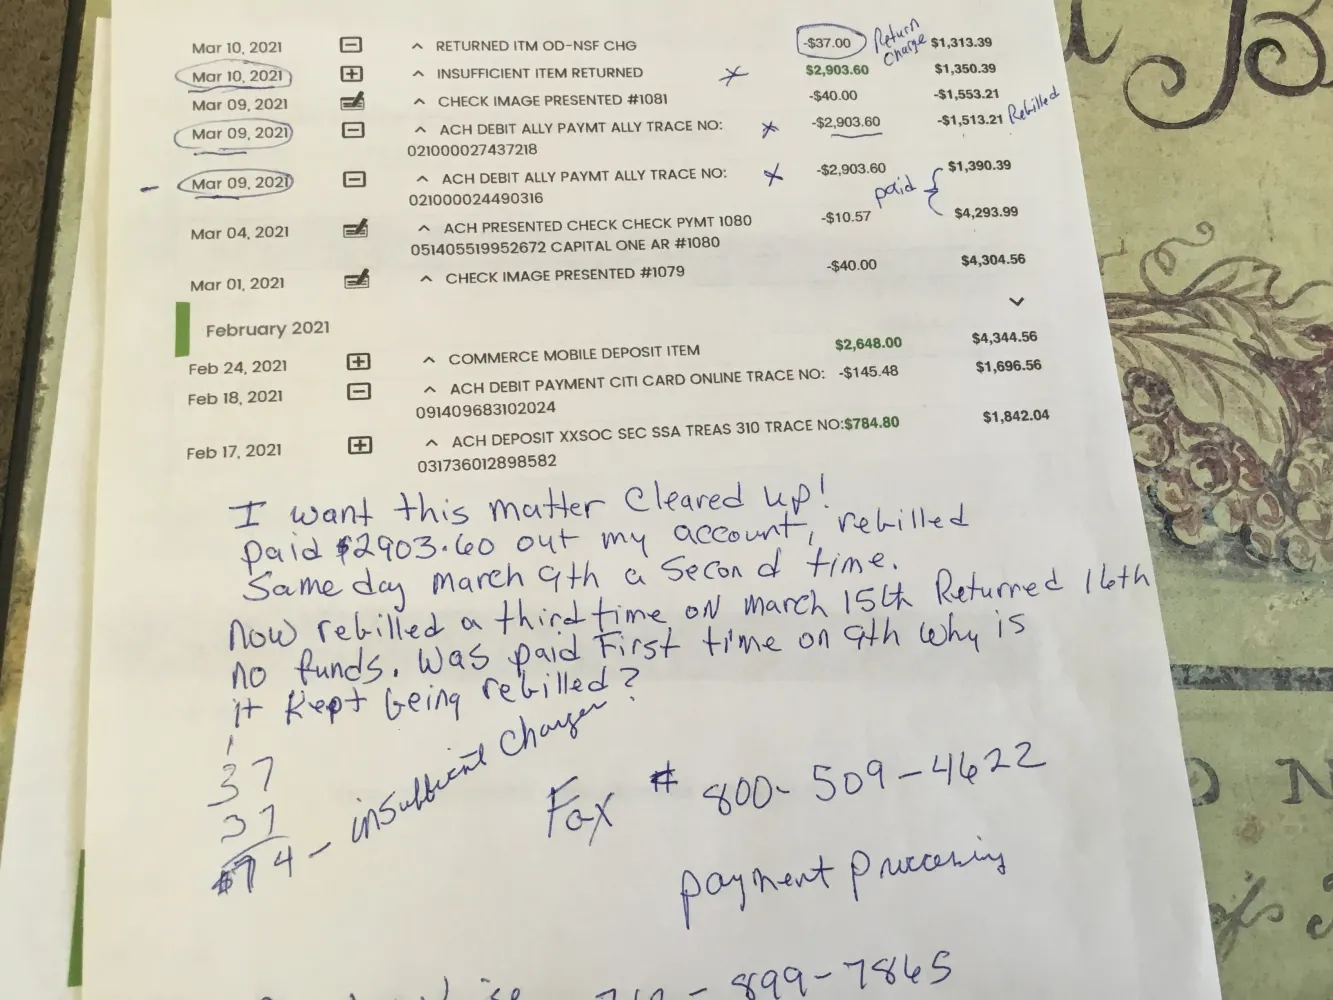 Mar 10, 2021 RETURNED ITM OD-NSF CHG -$37.00 Return Charge $1,313.39
Mar 10, 2021 INSUFFICIENT ITEM RETURNED $2,903.60 $1,350.39
Mar 09, 2021 CHECK IMAGE PRESENTED #1081 -$40.00 -$1,553.21
Mar 09, 2021 ACH DEBIT ALLY PAYMT ALLY TRACE NO: -$2,903.60 -$1,513.21 Rebilled
021000027437218
Mar 09, 2021 ACH DEBIT ALLY PAYMT ALLY TRACE NO: -$2,903.60 $1,390.39
021000024490316
paid
Mar 04, 2021 ACH PRESENTED CHECK CHECK PYMT 1080 -$10.57 $4,293.99
051405519952672 CAPITAL ONE AR #1080
Mar 01, 2021 CHECK IMAGE PRESENTED #1079 -$40.00 $4,304.56
February 2021
Feb 24, 2021 COMMERCE MOBILE DEPOSIT ITEM $2,648.00 $4,344.56
Feb 18, 2021 ACH DEBIT PAYMENT CITI CARD ONLINE TRACE NO: -$145.48 $1,696.56
091409683102024
Feb 17, 2021 ACH DEPOSIT XXSOC SEC SSA TREAS 310 TRACE NO: $784.80 $1,842.04
031736012898582
I want this matter cleared up!
paid $2903.60 out my account, rebilled
Same day march 9th a Second time.
Now rebilled a third time on march 15th Returned 16th
no funds. Was paid First time on 9th Why is
it kept being rebilled?
37
37
$74 - insufficient charges
Fax # 800-509-4622
payment processing
899-7865